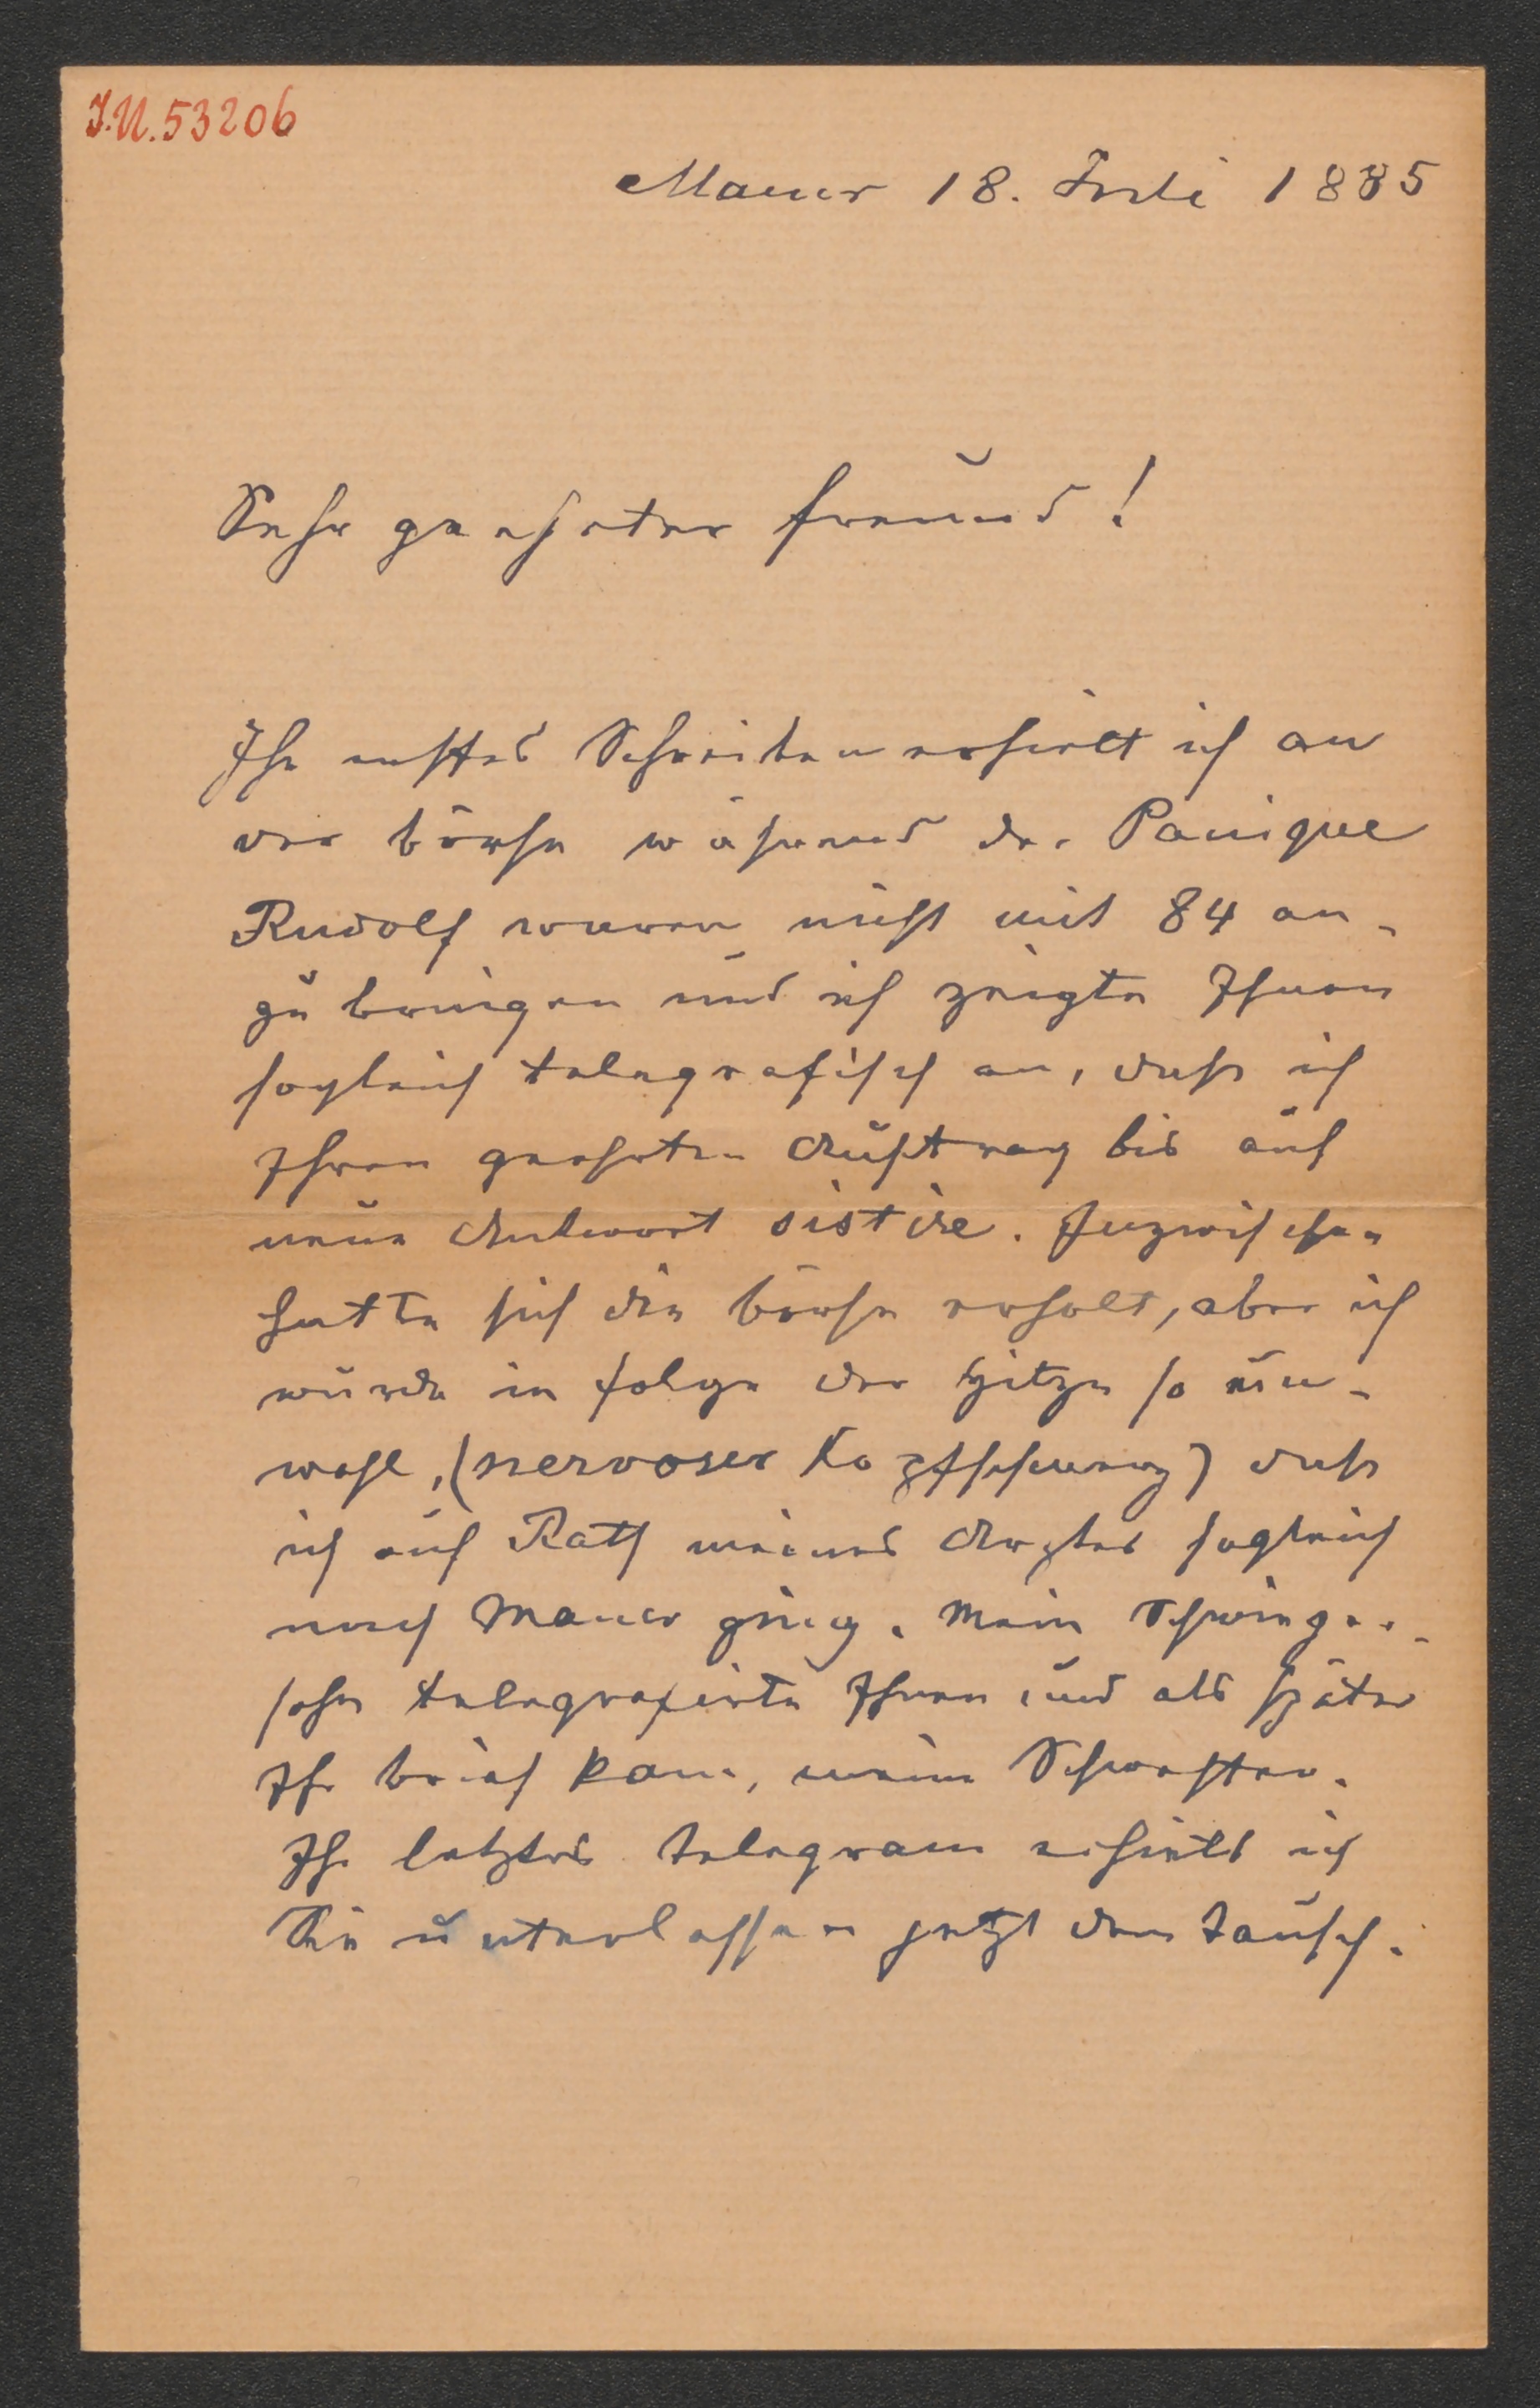 I.N. 53206
Mauer 18. Juli 1885
Sehr geehrter Freund!
Ihr erstes Schreiben erhielt ich an
der Börse während der Panique
Rudolf waren nicht mit 84 an-
zu bringen und ich zeigte Ihnen
sogleich telegrafisch an, dass ich
Ihren geehrten Auftrag bis auf
neue Antwort sistire. Inzwischen
hatte sich die Börse erholt, aber ich
wurde in Folge der Hitze so un-
wohl, (nervoser Kopfschmerz) dass
ich auf Rath meines Arztes sogleich
nach Mauer ging. Mein Schwieger-
sohn telegrafirte Ihnen und als später
Ihr Brief kam, meine Schwester.
Ihr letztes Telegram erhielt ich
Sie unterlassen jetzt den Tausch.